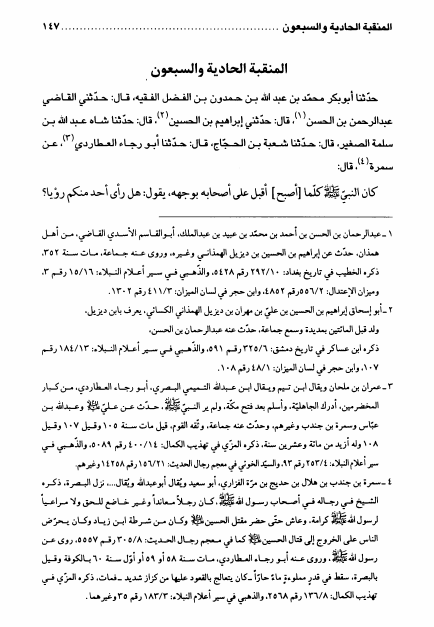 المنقبة الحادية والسبعون ................................................ ١٤٧
المنقبة الحادية والسبعون
حدّثنا أبوبكر محمّد بن عبد الله بن حمدون بن الفضل الفقيه، قال: حدّثني القاضي
عبدالرحمن بن الحسن(١)، قال: حدّثني إبراهيم بن الحسين(٢)، قال: حدّثنا شاه عبد الله بن
سلمة الصغير، قال: حدّثنا شعبة بن الحجّاج، قال: حدّثنا أبو رجاء العطاردي(٣)، عن
سمرة(٤)، قال:
كان النبيّ ﷺ كلّما [أصبح] أقبل على أصحابه بوجهه، يقول: هل رأى أحد منكم رؤيا؟
١ - عبدالرحمان بن الحسن بن أحمد بن محمّد بن عبيد بن عبدالملك، أبوالقاسم الأسدي القاضي، من أهل
همذان، حدّث عن إبراهيم بن الحسين بن ديزيل الهمذاني وغيره، وروى عنه جماعة، مات سنة ٣٥٢،
ذكره الخطيب في تاريخ بغداد: ٢٩٢/١٠ رقم ٥٤٢٨، والذّهبي في سير أعلام النبلاء: ١٥/١٦ رقم ٣،
وميزان الإعتدال: ٥٥٦/٢ رقم ٤٨٥٢، وابن حجر في لسان الميزان: ٤١١/٣ رقم ١٣٠٢.
٢ - أبو إسحاق إبراهيم بن الحسين بن عليّ بن مهران بن ديزيل الهمذاني الكسائي، يعرف بابن ديزيل،
ولد قبل المائتين بمديدة وسمع جماعة، حدّث عنه عبدالرحمان بن الحسن،
ذكره ابن عساكر في تاريخ دمشق: ٣٢٥/٦ رقم ٥٩١، والذّهبي في سير أعلام النبلاء: ١٨٤/١٣ رقم
١٠٧، وابن حجر في لسان الميزان: ٤٨/١ رقم ١٠٨.
٣ - عمران بن ملحان ويقال ابن تيم ويقال ابن عبدالله التميمي البصري، أبو رجاء العطاردي، من كبار
المخضرمين، أدرك الجاهليّة، وأسلم بعد فتح مكّة، ولم ير النبيّ ﷺ، حدّث عن عليّ ﷺ وعبدالله بن
عبّاس وسمرة بن جندب وغيرهم، وحدّث عنه جماعة، وثّقه القوم، قيل مات سنة ١٠٥ وقيل ١٠٧ وقيل
١٠٨ وله أزيد من مائة وعشرين سنة، ذكره المزّي في تهذيب الكمال: ٤٠٠/١٤ رقم ٥٠٨٩، والذّهبي في
سير أعلام النبلاء: ٢٥٣/٤ رقم ٩٣، والسيّد الخوئي في معجم رجال الحديث: ١٥٦/٢١ رقم ١٤٢٥٨ وغيرهم.
٤ - سمرة بن جندب بن هلال بن حديج بن مرّة الفزاري، أبو سعيد ويقال أبوعبدالله ويقال...، نزل البصرة، ذكره
الشيخ في رجاله في أصحاب رسول الله ﷺ، كان رجلاً معانداً وغير خاضع للحق ولا مراعياً
لرسول الله ﷺ كرامة، وعاش حتّى حضر مقتل الحسين ﷺ وكان من شرطة ابن زياد وكان يحرّض
الناس على الخروج إلى قتال الحسين ﷺ كما في معجم رجال الحديث: ٣٠٥/٨ رقم ٥٥٥٧، روى عن
رسول الله ﷺ، وروى عنه أبو رجاء العطاردي، مات سنة ٥٨ أو ٥٩ أو أوّل سنة ٦٠ بالكوفة وقيل
بالبصرة، سقط في قدرٍ مملوءةٍ ماءً حارّاً - كان يتعالج بالقعود عليها من كزاز شديد - فمات، ذكره المزّي في
تهذيب الكمال: ١٣٦/٨ رقم ٢٥٦٨، والذهبي في سير أعلام النبلاء: ١٨٣/٣ رقم ٣٥ وغيرهما.